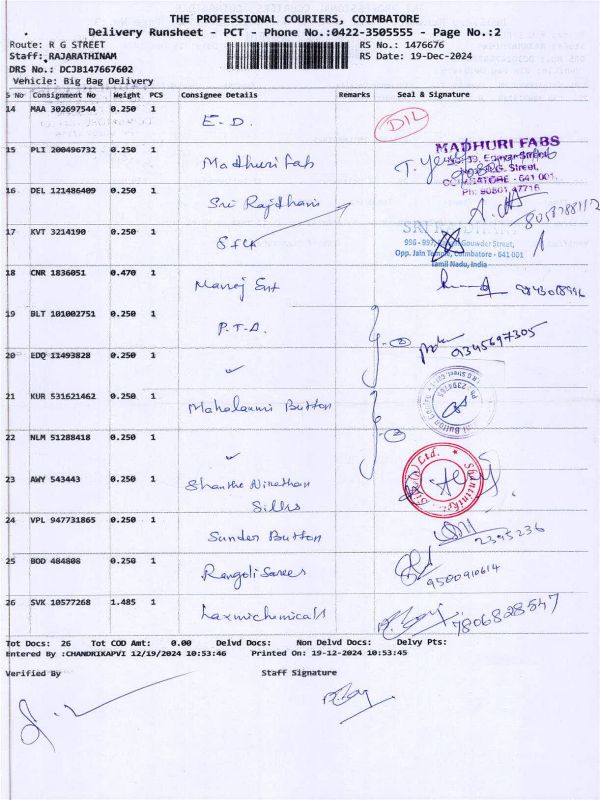 THE PROFESSIONAL COURIERS, COIMBATORE
Delivery Runsheet - PCT - Phone No.:0422-3505555 - Page No.:2
Route: R G STREET RS No.: 1476676
Staff: RAJARATHINAM RS Date: 19-Dec-2024
DRS No.: DCJB147667602
Vehicle: Big Bag Delivery
S No Consignment No Weight PCS Consignee Details Remarks Seal & Signature
14 MAA 302697544 0.250 1 E.D. DIL
MADHURI FABS
15 PLI 200496732 0.250 1 Madhuri fab
Street,
COIMBATORE - 641 001.
Ph: 90801 47716
16 DEL 121486409 0.250 1 Sri Rajdhani
17 KVT 3214190 0.250 1 Self
SRI RAJDHANI
996 - 997, Gowder Street,
Opp. Jain Temple, Coimbatore - 641 001
Tamil Nadu, India
18 CNR 1836051 0.470 1 Manoj Ent
19 BLT 101002751 0.250 1 P.T.A. 2 9345697305
20 EDQ 11493828 0.250 1 ✓
21 KUR 531621462 0.250 1 Mahalaxmi Button 2
22 NLM 51288418 0.250 1 ✓
23 AWY 543443 0.250 1 Shanthi Nikethan
Silks
24 VPL 947731865 0.250 1 Sunder Button 2395236
25 BOD 484808 0.250 1 Rangoli Sarees 9500910614
26 SVK 10577268 1.485 1 Laxmichemicals 7806828547
Tot Docs: 26 Tot COD Amt: 0.00 Delvd Docs: Non Delvd Docs: Delvy Pts:
Entered By :CHANDRIKAPVI 12/19/2024 10:53:46 Printed On: 19-12-2024 10:53:45
Verified By Staff Signature